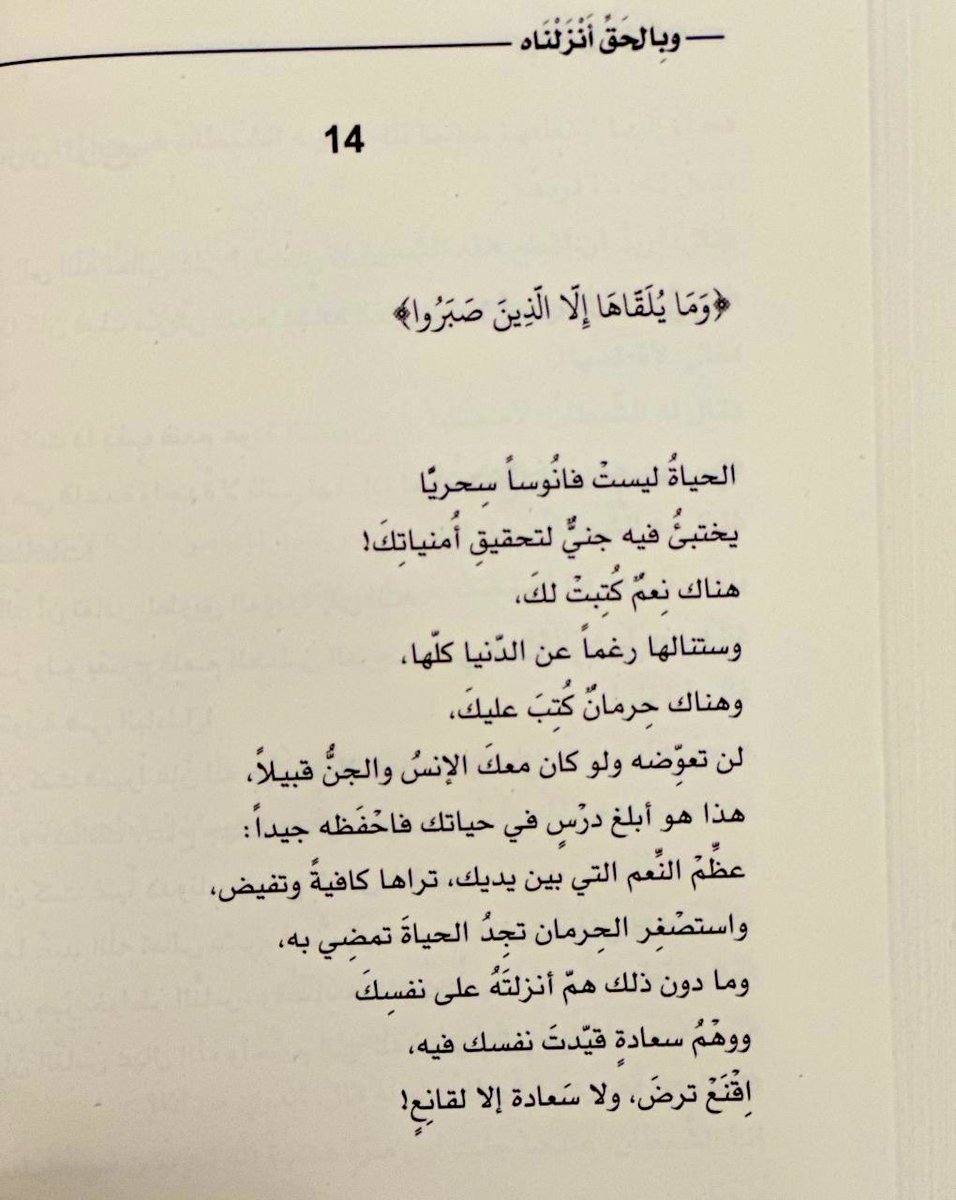 وبِالحَقِّ أَنْزَلْنَاه
14
﴿وَمَا يُلَقَاهَا إِلَّا الَّذِينَ صَبَرُوا﴾
الحياةُ ليستْ فانُوساً سِحريًّا
يختبئُ فيه جنيٌّ لتحقيقِ أُمنياتِكَ!
هناك نِعمٌ كُتِبتْ لكَ،
وستنالها رغماً عن الدّنيا كلّها،
وهناك حِرمانٌ كُتِبَ عليكَ،
لن تعوِّضه ولو كان معكَ الإنسُ والجنُّ قبيلاً،
هذا هو أبلغ درْسٍ في حياتك فاحْفَظه جيداً:
عظِّمْ النِّعم التي بين يديك، تراها كافيةً وتفيض،
واستصْغِر الحِرمان تجِدُ الحياةَ تمضِي به،
وما دون ذلك همّ أنزلتَهُ على نفسِكَ
ووهْمُ سعادةٍ قيّدتَ نفسك فيه،
اِقْنَعْ ترضَ، ولا سَعادة إلا لقانِعٍ!